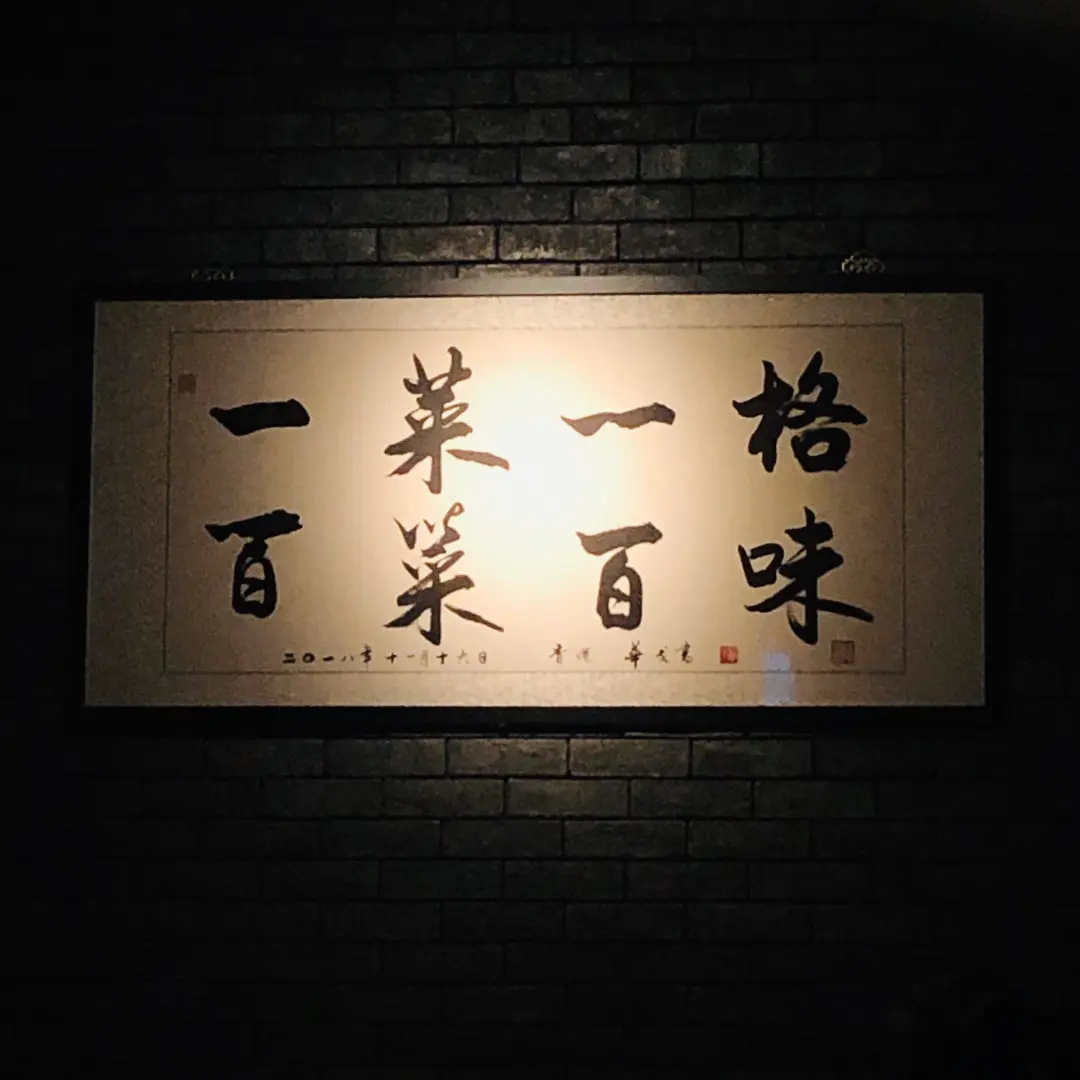 一菜一格
百菜百味
二〇一八年十一月十六日 華戈